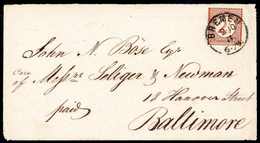 BREMEN
John N. Böse Esqr
Care of Messrs Soliger & Newman
paid
18 Hanover Street
Baltimore